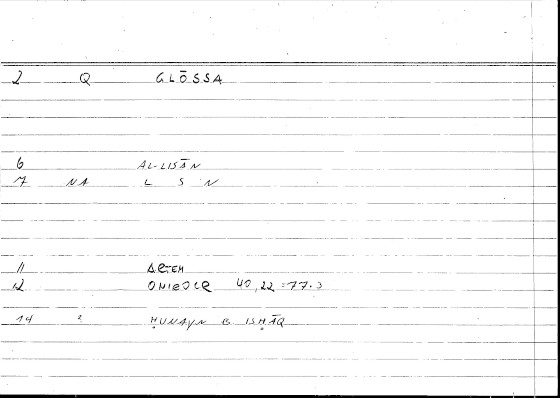 2 Q GLŌSSA
6 AL-LISĀN
7 NA L S N
11 ARTEM
12 ONIEOCR 40,22 = 77.3
14 2 ḤUNAYN B ISḤĀQ